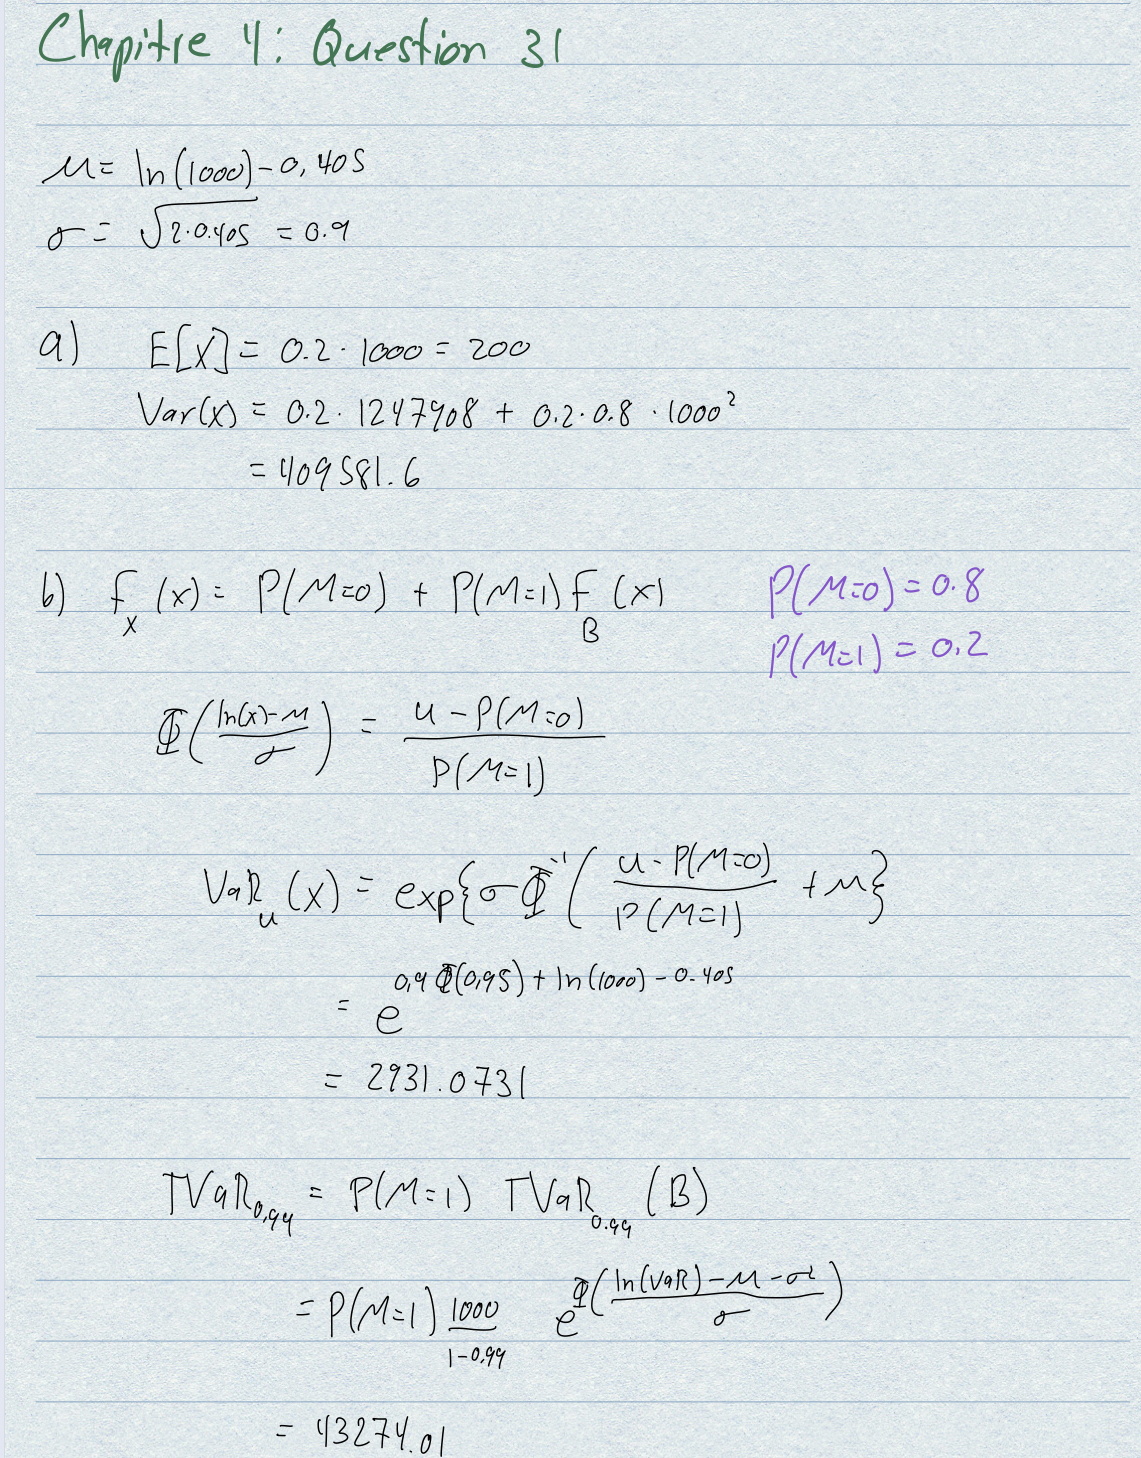 Chapitre 4: Question 31
μ = ln(1000) - 0,405
σ = √2·0.405 = 0.9
a) E[X] = 0.2 · 1000 = 200
Var(X) = 0.2 · 1247908 + 0.2 · 0.8 · 1000²
= 409581.6
b) F_X (x) = P(M=0) + P(M=1) F_B (x)
P(M=0) = 0.8
P(M=1) = 0.2
Φ((ln(x)-μ)/σ) = (u - P(M=0))/P(M=1)
VaR_u (X) = exp{σ Φ^-1 ( (u - P(M=0))/P(M=1) + μ}
= e^(0,9 Φ(0,95) + ln(1000) - 0.405)
= 2931.0731
TVaR_0,99 = P(M=1) TVaR_0.99 (B)
= P(M=1) 1000/(1-0,99) e^Φ((ln(VaR) - μ - σ²)/σ)
= 43274.01